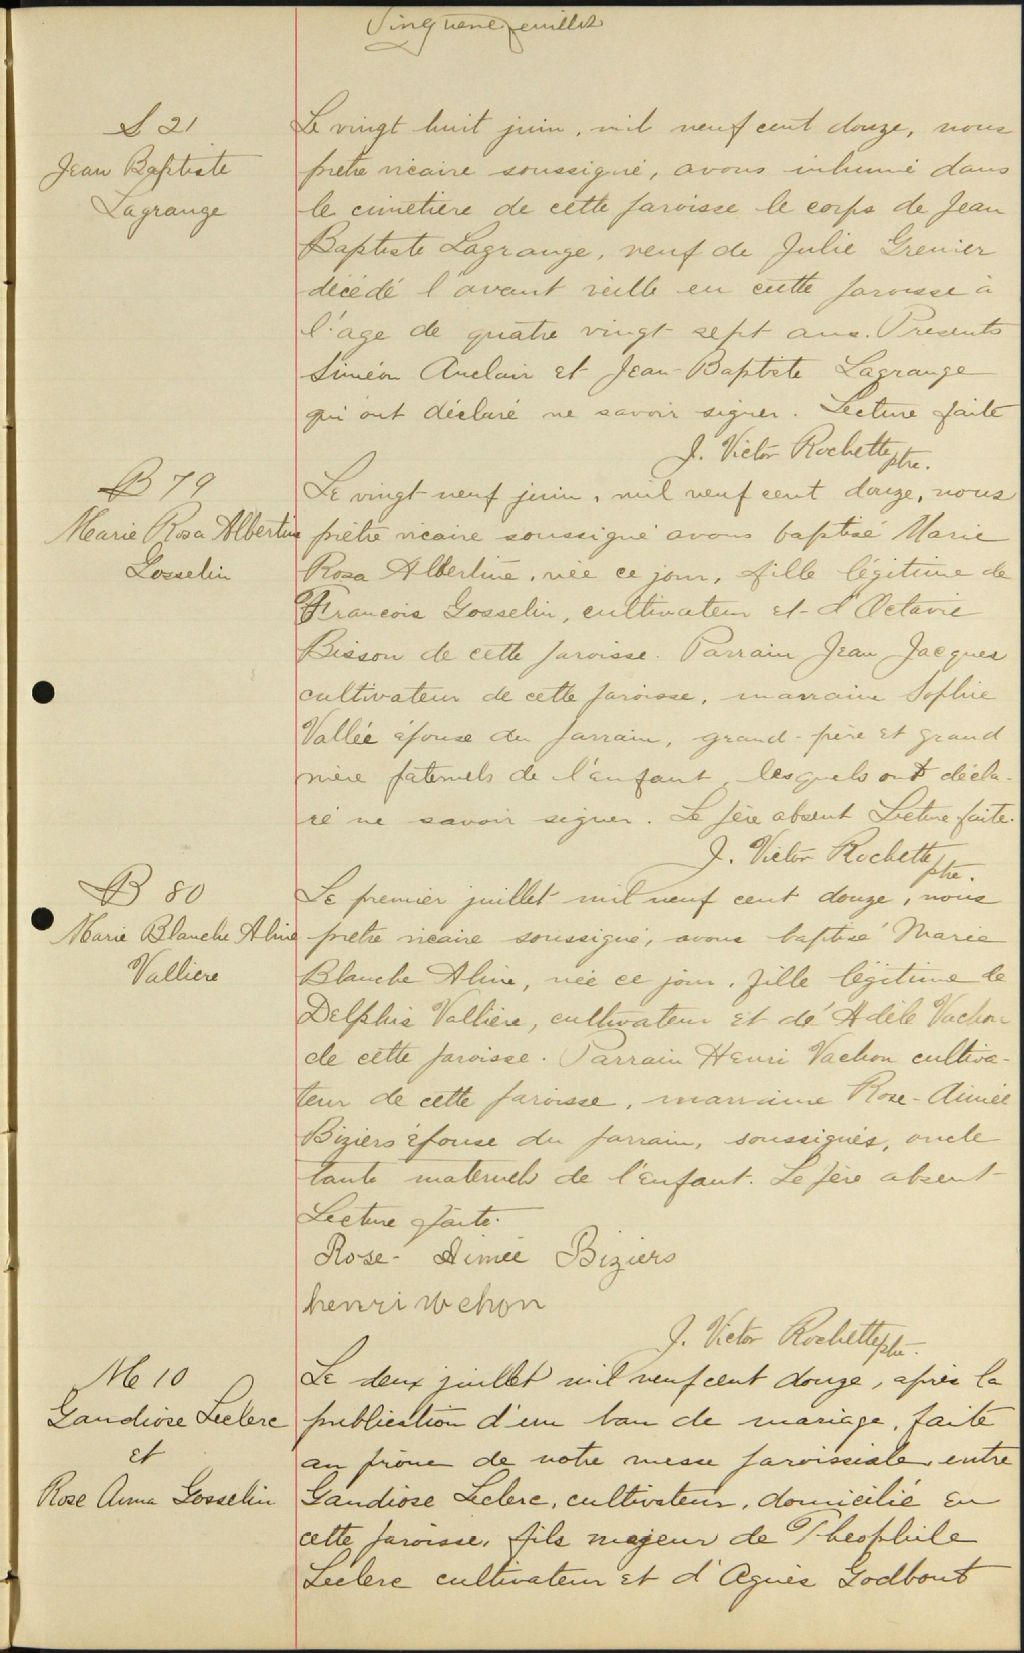 feuillet
S 21
Jean Baptiste
Lagrange
Le vingt huit juin, mil neuf cent douze, nous
prêtre vicaire soussigné, avons inhumé dans
le cimetière de cette paroisse le corps de Jean
Baptiste Lagrange, veuf de Julie Grenier
décédé l'avant veille en cette paroisse à
l'age de quatre vingt sept ans. Presents
Siméon Auclair et Jean-Baptiste Lagrange
qui ont déclaré ne savoir signer. Lecture faite
J. Victor Rochette ptre.
B 79
Marie Rosa Albertine
Gosselin
Le vingt neuf juin, mil neuf cent douze, nous
prêtre vicaire soussigné avons baptisé Marie
Rosa Albertine, née ce jour, fille légitime de
François Gosselin, cultivateur et d'Octavie
Bisson de cette paroisse. Parrain Jean Jacques
cultivateur de cette paroisse, marraine Sophie
Vallée épouse du parrain, grand-père et grand
mère paternels de l'enfant, lesquels ont décla-
ré ne savoir signer. Le père absent Lecture faite.
J. Victor Rochette ptre.
B 80
Marie Blanche Aline
Vallière
Le premier juillet mil neuf cent douze, nous
prêtre vicaire soussigné, avons baptisé Marie
Blanche Aline, née ce jour, fille légitime de
Delphis Vallière, cultivateur et de Adèle Vachon
de cette paroisse. Parrain Henri Vachon cultiva-
teur de cette paroisse, marraine Rose-Aimée
Biziers épouse du parrain, soussignés, oncle
tante maternels de l'enfant. Le père absent
Lecture faite.
Rose-Aimée Biziers
henri vachon
J. Victor Rochette ptre.
M 10
Gaudiose Leclerc
et
Rose Anna Gosselin
Le deux juillet mil neuf cent douze, après la
publication d'un ban de mariage, faite
au prône de notre messe paroissiale, entre
Gaudiose Leclerc, cultivateur, domicilié en
cette paroisse, fils majeur de Theophile
Leclerc cultivateur et d'Agnès Godbout